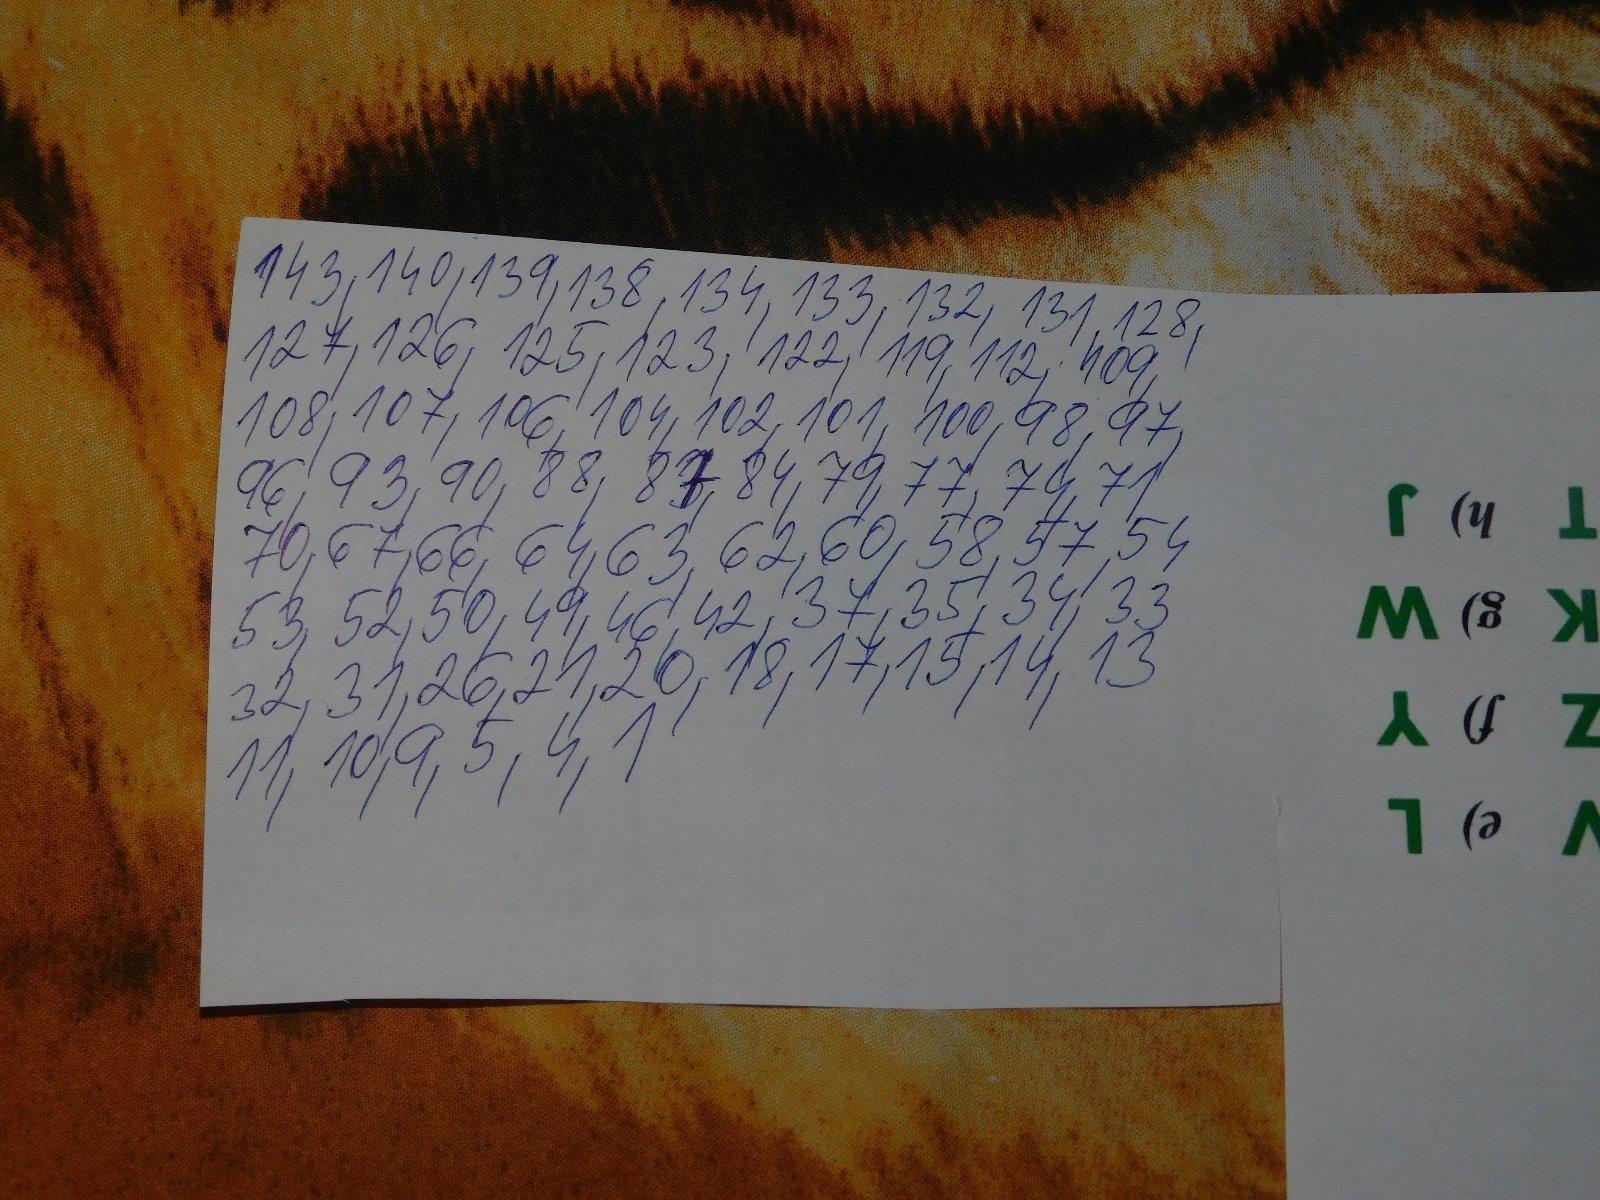 143, 140, 139, 138, 134, 133, 132, 131, 128,
127, 126, 125, 123, 122, 119, 112, 109,
108, 107, 106, 104, 102, 101, 100, 98, 97,
96, 93, 90, 88, 87, 84, 79, 77, 74, 71
70, 67, 66, 64, 63, 62, 60, 58, 57, 54
53, 52, 50, 49, 46, 42, 37, 35, 34, 33
32, 31, 26, 21, 20, 18, 17, 15, 14, 13
11, 10, 9, 5, 4, 1
e) L V
f) Y Z
g) W K
h) J T